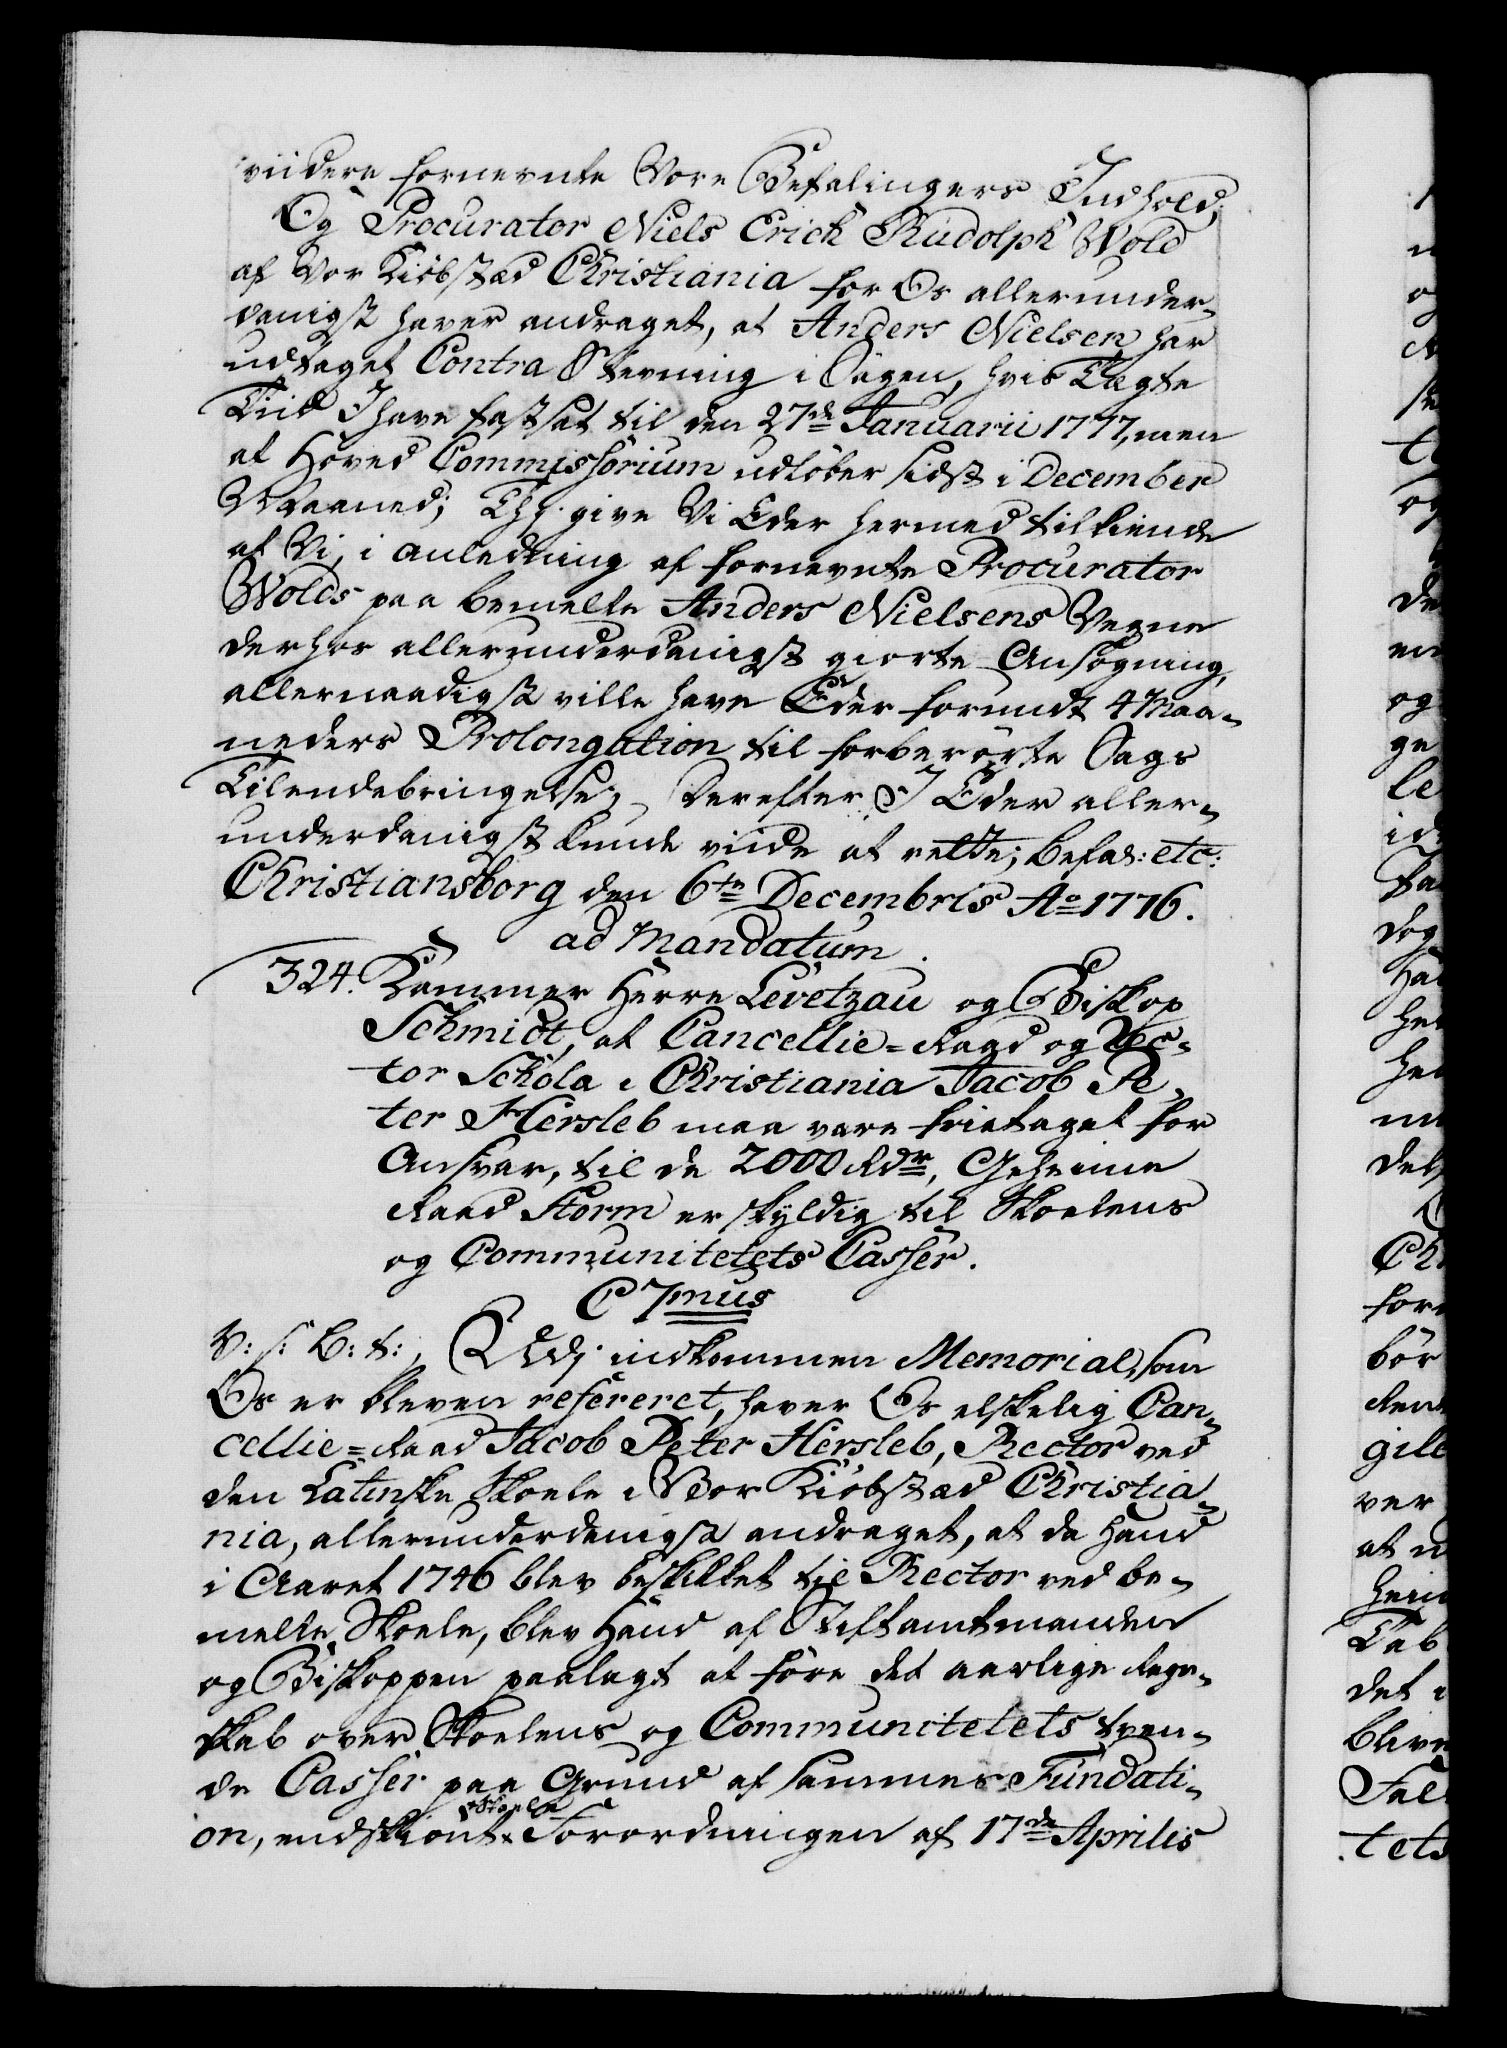 viidere fornevnte Vore Befalingers Indhold;
Og Procurator Niels Erich Rudolph Wold
af Vor Kiøbstæd Christiania for Os allerunder-
danigst haver andraget, at Anders Nielsen har
udtaget Contra Stevning i Sagen, hvis Tægte
Tiid I have fastsat til den 27de Januarii 1777, men
at Hoved Commissorium udløber sidst i December
Maaned; Thi give Vi Eder hermed tilkiende
at Vi, i anledning af fornevnte Procurator
Wolds paa bemelte Anders Nielsens Vegne
derhos allerunderdanigst giorte Ansøgning,
allernaadigst ville have Eder forundt 4 Maa-
neders Prolongation til forberørte Sags
Tilendebringelse; Derefter I Eder aller-
underdanigst kunde viide at rette; Befal: etc:
Christiansborg den 6te Decembris Ao 1776.
ad Mandatum.
324. Kammer Herre Levetzau og Biskop
Schmidt, at Cancellie-Raad og Rec-
tor Schola i Christiania Jacob Pe-
ter Hersleb maa være frietaget for
Ansvar, til de 2000 Rdr, Geheime
Raad Storm er skyldig til Skoelens
og Communitetets Casser.
C 7mus
V: s: B: t:, Udj indkommen Memorial, som
Os er bleven refereret, haver Os elskelig Can-
cellie-Raad Jacob Peter Hersleb, Rector ved
den Latinske Skoele i Vor Kiøbstæd Christia-
nia, allerunderdanigst andraget, at da hand
i Aaret 1746 blev beskikket til Rector ved be-
melte Skoele, blev Hand af Stiftamtmanden
og Biskoppen paalagt at føre det aarlige Regn-
skab over Skoelens og Communitetets tven-
de Casser paa Grund af sammes Fundati-
on, endskiønt Skoele Forordningen af 17de Aprilis